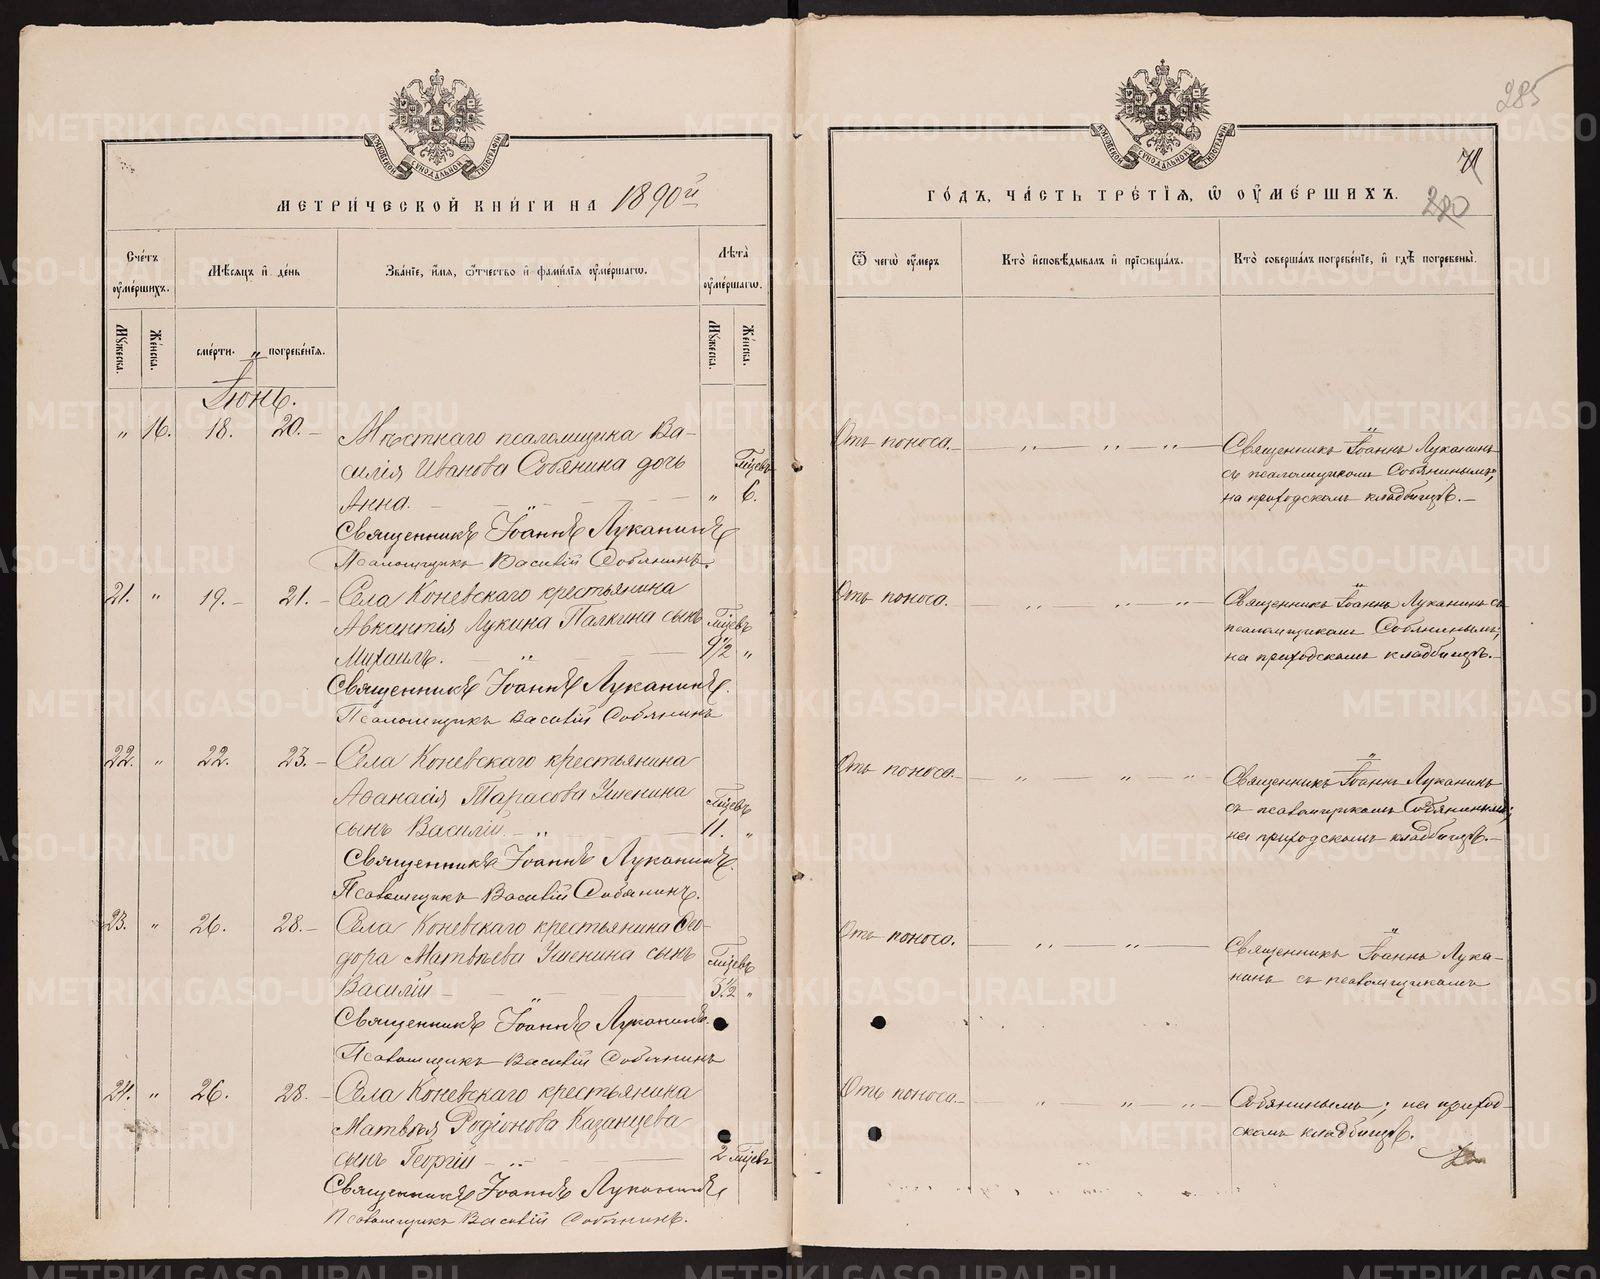 285
МЕТРИ́ЧЕСКОЙ КНИ́ГИ НА 1890й
ГО́ДЪ, ЧА́СТЬ ТРЕ́ТІЯ, Ѿ ОУ҆МЕ́РШИХЪ.
280
Сче́тъ оу҆ме́ршихъ.
Мѣ́сяцъ и҆ де́нь
Зва́ніе, и҆́мя, ѻ҆́тчество и҆ фами́лія оу҆ме́ршагѡ.
Лѣ́та оу҆ме́ршагѡ.
Ѿ чегѡ̀ оу҆́меръ
Кто̀ и҆сповѣ́дывалъ и҆ пріѡбща́лъ.
Кто̀ соверша́лъ погребе́ніе, и҆ гдѣ̀ погребены̀.
Му́жеска.
Же́нска.
сме́рти.
погребе́нія.
Му́жеска.
Же́нска.
Іюнь.
" 16. 18. 20.
Мѣстнаго псаломщика Ва-
силія Иванова Собянина дочь
Анна. " Мѣсецъ 6.
Священникъ Іоаннъ Луканинъ
Псаломщикъ Василій Собянинъ.
Отъ поноса.
Священникъ Іоаннъ Луканинъ
съ псаломщикомъ Собянинымъ;
на приходскомъ кладбищѣ.
21. " 19. 21.
Села Коневскаго крестьянина
Авксентія Лукина Палкина сынъ
Михаилъ. Мѣсецъ 9½ "
Священникъ Іоаннъ Луканинъ.
Псаломщикъ Василій Собянинъ
Отъ поноса.
Священникъ Іоаннъ Луканинъ съ
псаломщикомъ Собянинымъ;
на приходскомъ кладбищѣ.
22. " 22. 23.
Села Коневскаго крестьянина
Аѳанасія Тарасова Ушенина
сынъ Василій. Мѣсецъ 11. "
Священникъ Іоаннъ Луканинъ.
Псаломщикъ Василій Собянинъ.
Отъ поноса.
Священникъ Іоаннъ Луканинъ
съ псаломщикомъ Собянинымъ;
на приходскомъ кладбищѣ.
23. " 26. 28.
Села Коневскаго крестьянина Ѳео-
дора Матвѣева Ушенина сынъ
Василій Мѣсецъ 3½ "
Священникъ Іоаннъ Луканинъ.
Псаломщикъ Василій Собянинъ
Отъ поноса.
Священникъ Іоаннъ Лука-
нинъ съ псаломщикомъ
24. " 26. 28.
Села Коневскаго крестьянина
Матвѣя Родіонова Казанцева
сынъ Георгій 2 Мѣсец
Священникъ Іоаннъ Луканинъ
Псаломщикъ Василій Собянинъ.
Отъ поноса.
Собянинымъ; на приход-
скомъ кладбищѣ.
METRIKI.GASO-URAL.RU